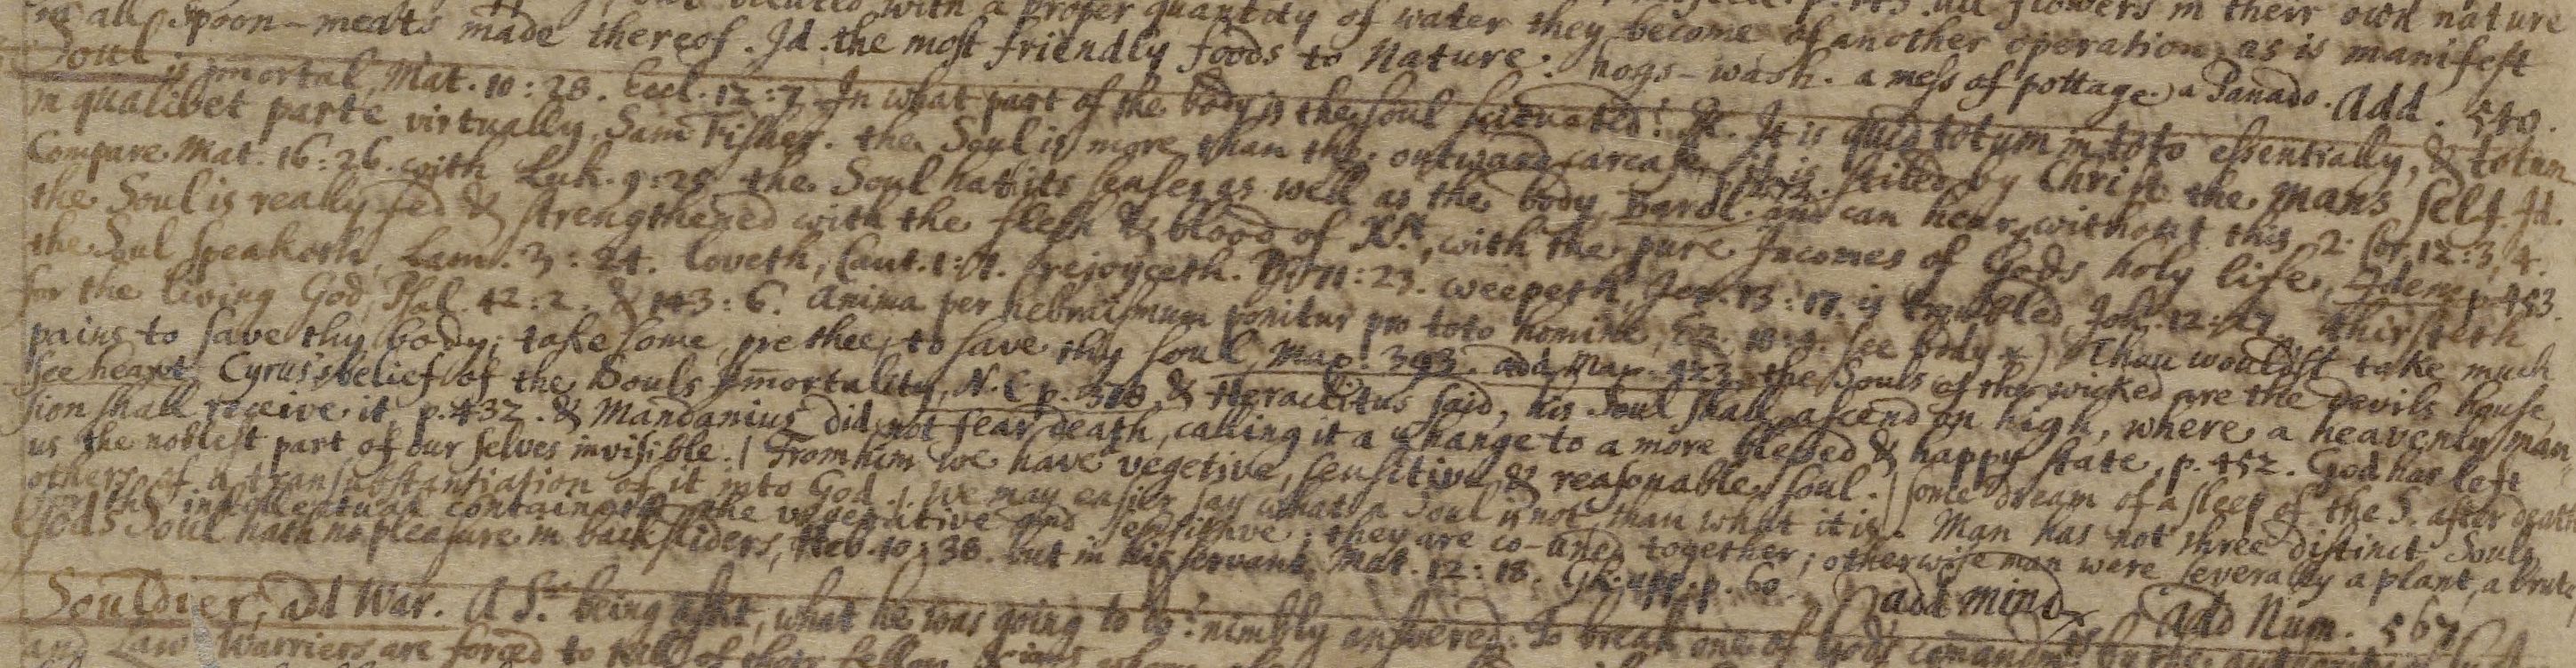 with a proper quantity of water they become of another operation, as is manifest
in all spoon-meats made thereof. Id. the most friendly foods to Nature: hogs-wash. a mess of pottage, a Panado. Add. 540.
Soul is im̄ortal, Mat. 10:28. Eccl. 12:7. In what part of the body is the soul scituated? R. It is quid totum in toto essentially, & totum
in qualibet parte virtually, Sam Fisher. the Soul is more than the outward carcase, it is stiled by Christ the mans self. Id.
Compare Mat. 16:26. with Luk. 9:25. the Soul hath its senses as well as the body, Barcl. and can hear without this, 2 Cor. 12:3,4.
the Soul is really fed & strengthened with the flesh & blood of Xt, with the pure Incomes of Gods holy life, Idem p 453.
the Soul speaketh, Lam. 3:24. loveth, Cant. 1:7. rejoyceth. 71:23. weepeth, Jer. 13:17. is troubled, Joh. 12:27. thirsteth
for the living God, Psal. 42:2. & 143:6. Anima per hebraismum ponitur pro toto homine, Ez. 18:4. see body *) Thou wouldst take much
pains to save thy body; take some, pre thee, to save thy soul, Map. 393. add Map. 423. the Souls of the wicked are the Devils house,
see heart. Cyrus's belief of the Souls im̄ortality, N. C. p. 378. & Heraclitus said, his Soul shall ascend on high, where a heavenly man
sion shall receive it, p. 432. & Mandanius did not fear death, calling it a change to a more blessed & happy state, p. 452. God has left
us the noblest part of our selves invisible. | From him we have vegetive, sensitive & reasonable soul. | some dream of a sleep of the S. after death
others of a transubstantiation of it into God. |. We may easier say what a Soul is not, than what it is. Man has not three distinct Souls,
for the intellectual contains the vegetative and sensitive; they are co-uned together; otherwise man were severally a plant, a brute
Gods Soul hath no pleasure in backsliders, Heb. 10:38. but in his servant, Mat. 12:18. Gk. upp. p. 60. add mind. Add Num. 567
Souldier, add War. A Sr. being askt, what he was going to do? nimbly answered: To break one of Gods com̄andmts
and Law Warriers are forced to kill of their fellow